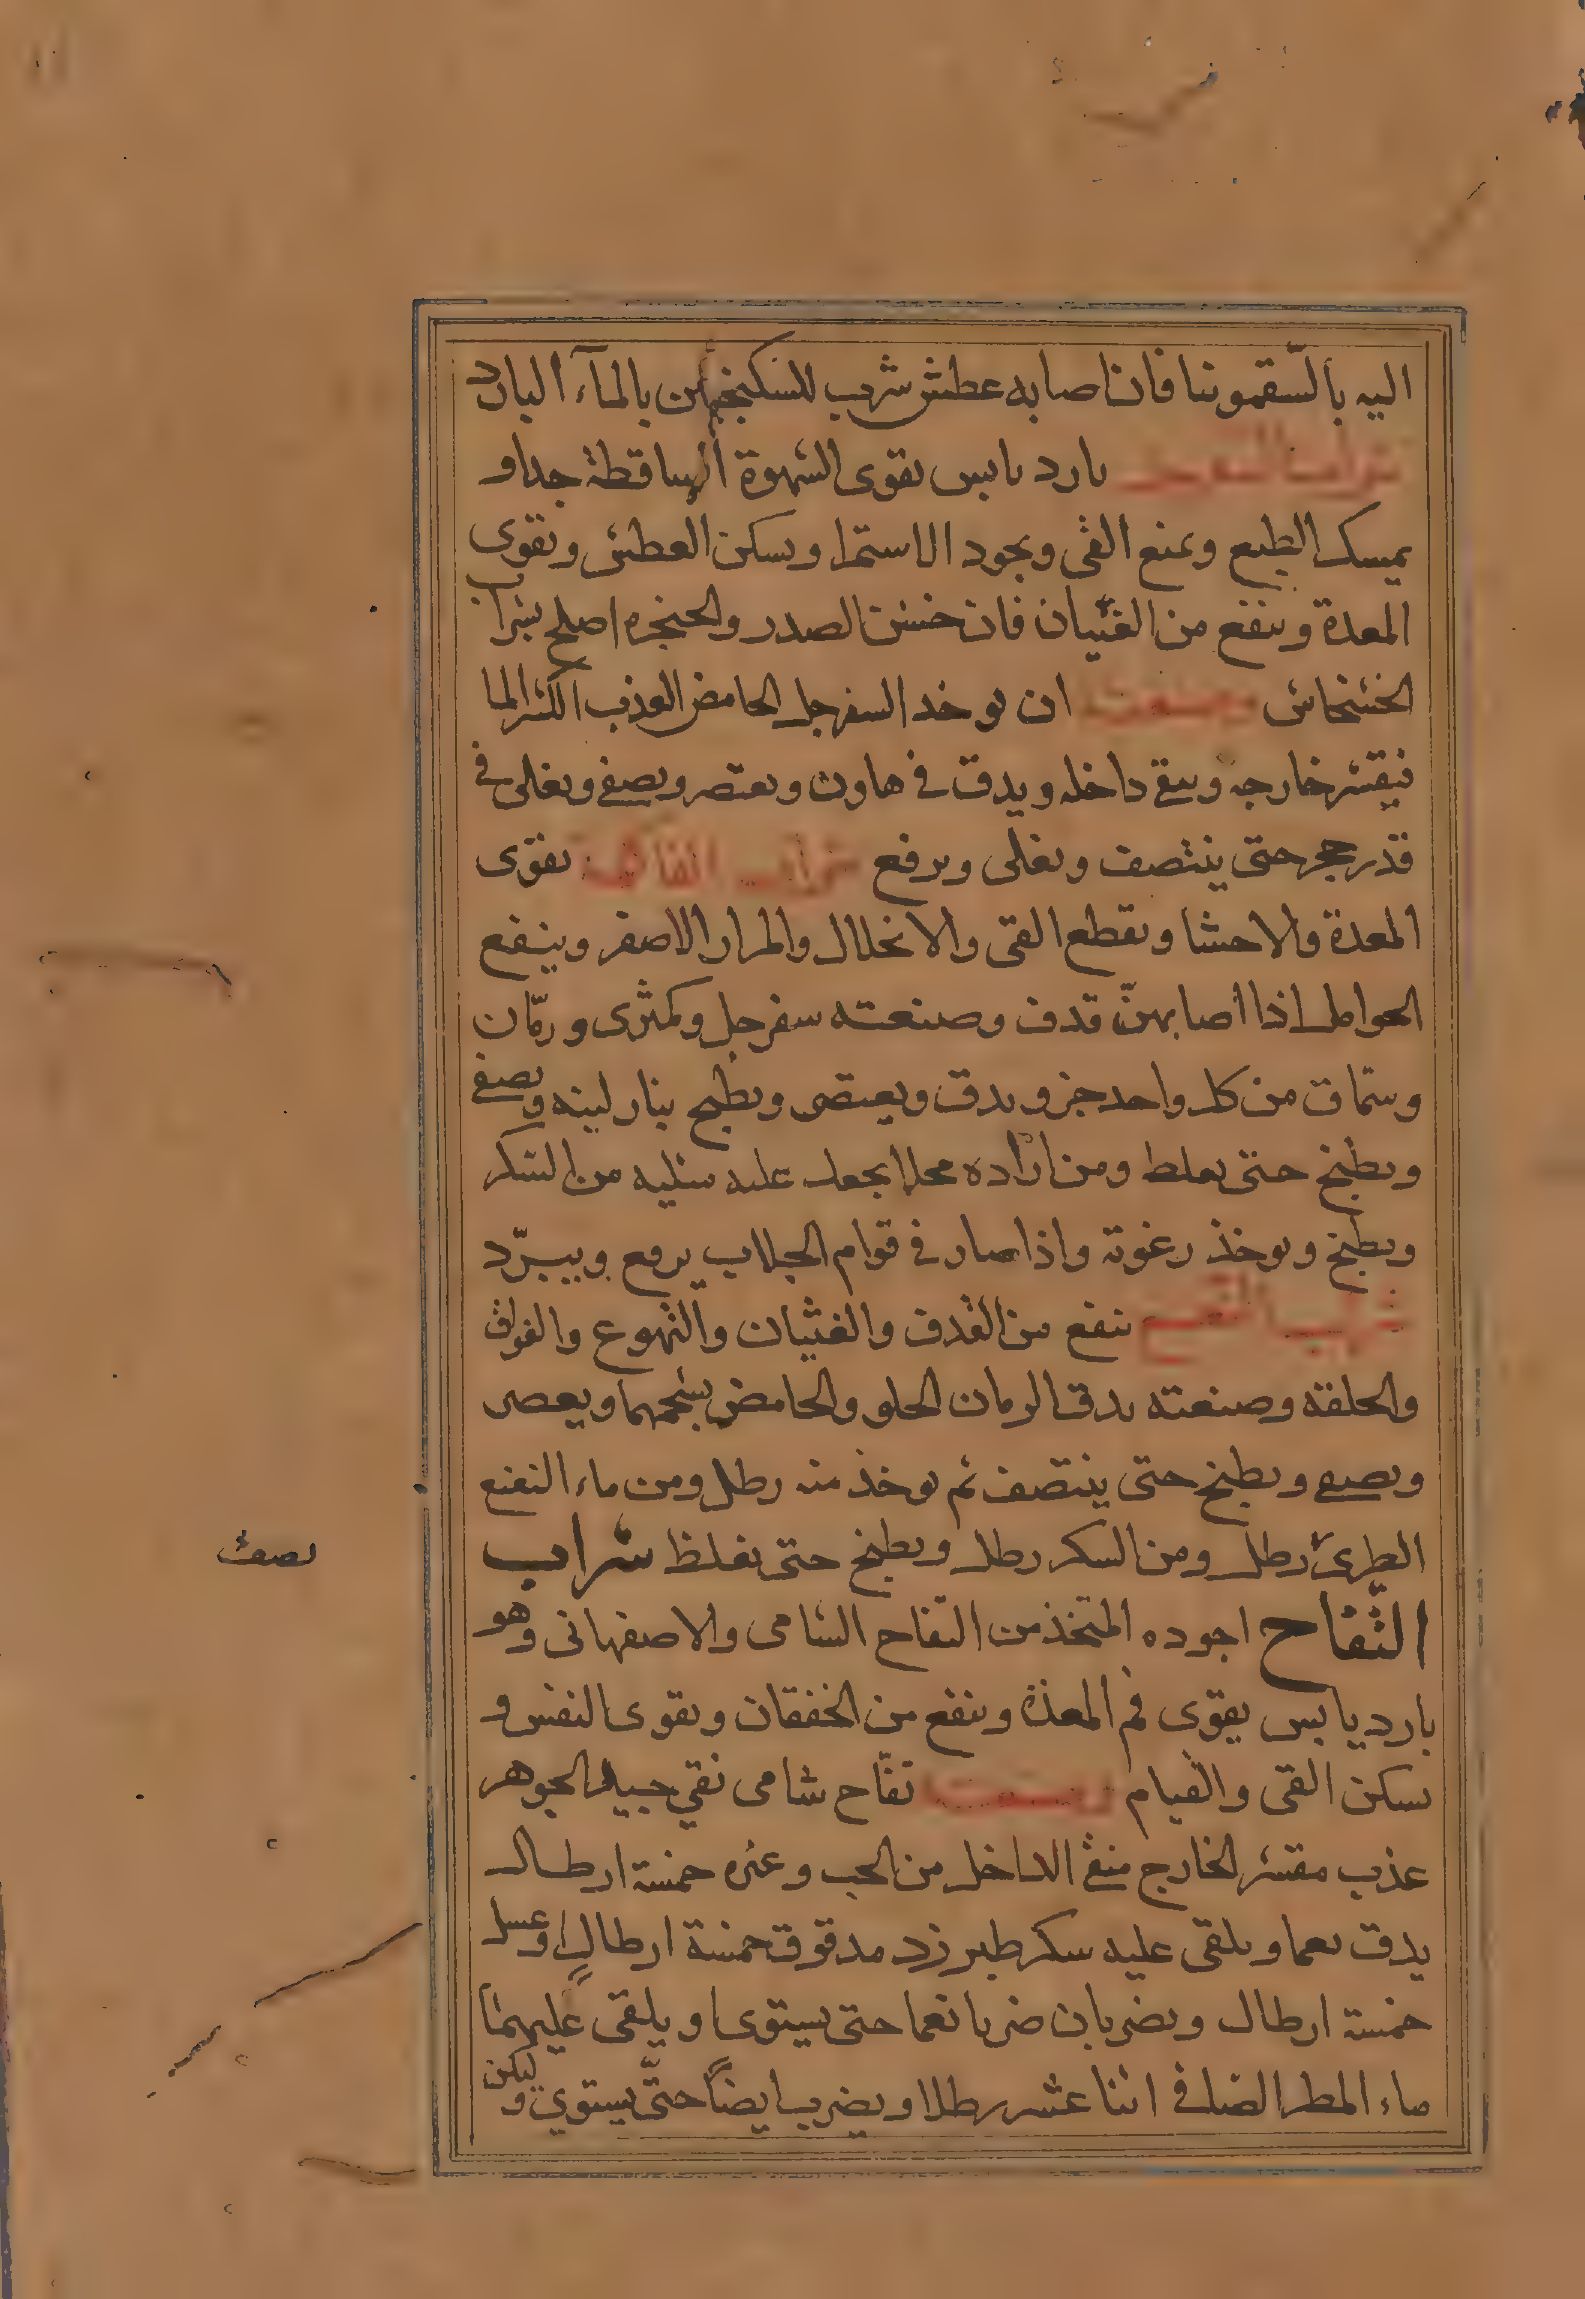 اليه بالسّقمونيا فان اصابه عطش شرب السكنجبين بالمآء البارد
شراب السفرجل بارد يابس يقوى الشهوة الساقطة جدا و
يمسك الطبع ويمنع القى ويجود الاستمرا ويسكن العطش ويقوى
المعدة وينفع من الغثيان فان خشن الصدر والحنجره اصلح بشراب
الخشخاش وصنعته ان يوخد السفرجل الحامض العذب الكثير الما
فيقشر خارجه وينقى داخله ويدق فى هاون ويعتصر ويصفى ويغلى فى
قدر حجر حتى ينتصف ويغلى ويرفع شراب الفاكهة يقوى
المعدة والاحشا ويقطع القى والانحلال والمرار الاصفر وينفع
الحوامل اذا اصابهنّ قذف وصنعته سفرجل وكمثرى ورمّان
وسمّاق من كل واحد جزو يدق ويعتصر ويطبخ بنار لينه ويصفى
ويطبخ حتى يغلظ ومن اراده محلا يجعل عليه مثليه من السكر
ويطبخ ويوخذ رغوته واذا صار فى قوام الجلاب يرفع ويبرّد
شراب النعنع ينفع من القذف والغثيان والتهوع والفواق
والخلفه وصنعته يدق الرمان الحلو والحامض بشحمهما ويعصر
ويصفى ويطبخ حتى ينتصف ثم يوخذ منه رطل ومن ماء النعنع
الطرى رطل ومن السكر رطل ويطبخ حتى يغلظ شراب
نصف
التّفاح اجوده المتخذ من التفاح الشامى والاصفهانى وهو
بارد يابس يقوّى فم المعدة وينفع من الخفقان ويقوى النفس و
يسكن القى والقيام وصنعته تفّاح شامى نقي جيد الجوهر
عذب مقشر الخارج منقى الداخل من الحب وغيره خمسة ارطال
يدق نعما ويلقى عليه سكر طبرزد مدقوق خمسة ارطالٍ وعسل
خمسة ارطال ويضربان ضربا نعما حتى يستوى ويلقى عليهما
ماء المطر الصافى اثنا عشر رطلا ويضرب ايضاً حتّى يستوي وليكن